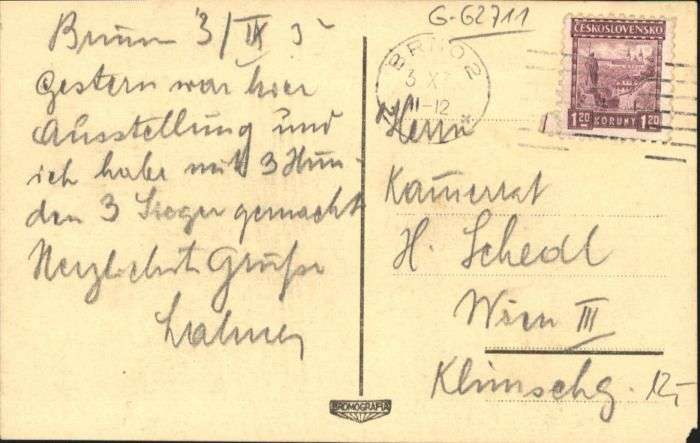 Brünn 3/IX 3
Gestern war hier
Ausstellung und
ich habe mit 3 Hun-
den 3 Sieger gemacht
Herzlichste Grüße
G-G2711
BRNO 2
3 X
11-12
ČESKOSLOVENSKO
1 20 KORUNY 1 20
Herrn
Kamerrat
H. Schedl
Wien III
Klimschg. 12,
BROMOGRAFIA